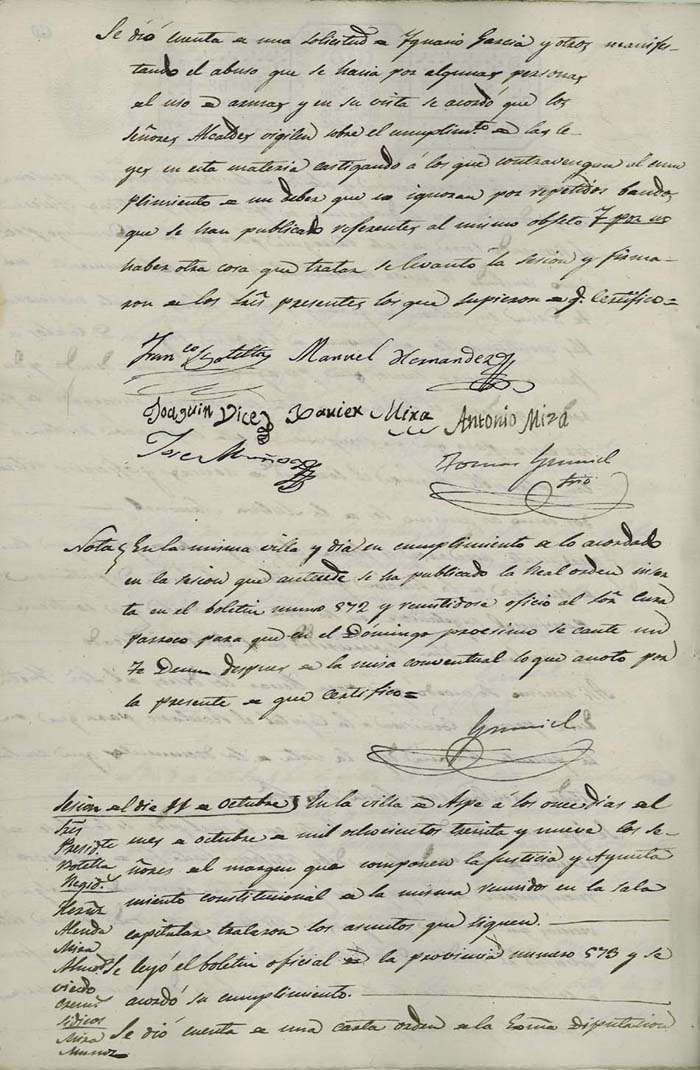 Se dió cuenta de una solicitud de Ygnacio Garcia y otros manifes-
tando el abuso que se hacia por algunas personas
del uso de armas y en su vista se acordó que los
Señores Alcaldes vigilen sobre el cumplimto de las le-
yes en esta materia castigando á los que contravengan al cum
plimiento de un deber que no ignoran por repetidos bandos
que se han publicado referentes al mismo objeto Y por no
haber otra cosa que tratar se levantó la sesion y firma-
ron de los Sres presentes los que supieron de q. Certifico=
Franco Botella Manuel Hernandez
Joaquin Vice Xavier Mira Antonio Mira
Jose Muñoz
Tomas
Srio
Nota En la misma villa y dia en cumplimiento de lo acordado
en la sesion que antecede se ha publicado la Real orden inser
ta en el boletin numo 572 y remitidose oficio al Sor Cura
Parroco para que en el Domingo procsimo se cante un
Te Deum despues de la misa conventual lo que anoto por
la presente de que certifico=
Sesion del dia 11 de Octubre En la villa de Aspe á los once dias del
Sres
Preside
mes de octubre de mil ochocientos treinta y nueve los Se-
Botella
ñores del margen que componen la Justicia y Ayunta
Regid.
miento constitucional de la misma reunidos en la sala
Hernz
Almda
capitular trataron los asuntos que siguen.
Mira
Se leyó el boletin oficial de la provincia numero 573 y se
viedo
acordó su cumplimiento.
Sidicos
Se dió cuenta de una carta orden de la Ecsma Diputacion
Mira
Munoz